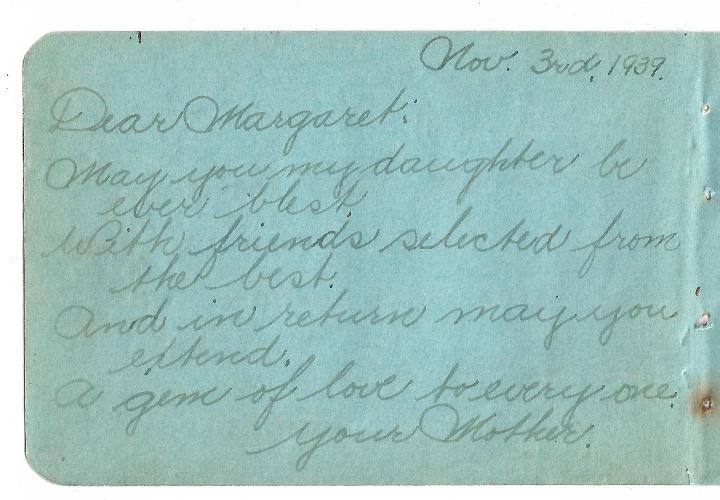 Nov. 3rd, 1939.
Dear Margaret:
May you my daughter be
ever blest
With friends selected from
the best.
And in return may you
extend.
A gem of love to every one.
your Mother.